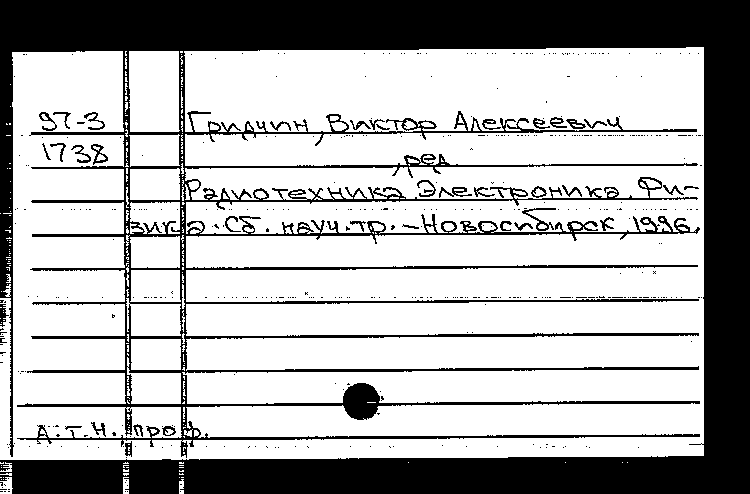 97-3 Гридчин, Виктор Алексеевич
1738 , ред
Радиотехника. Электроника. Фи-
зика. Сб. науч. тр. - Новосибирск, 1996.
д.т.н., проф.